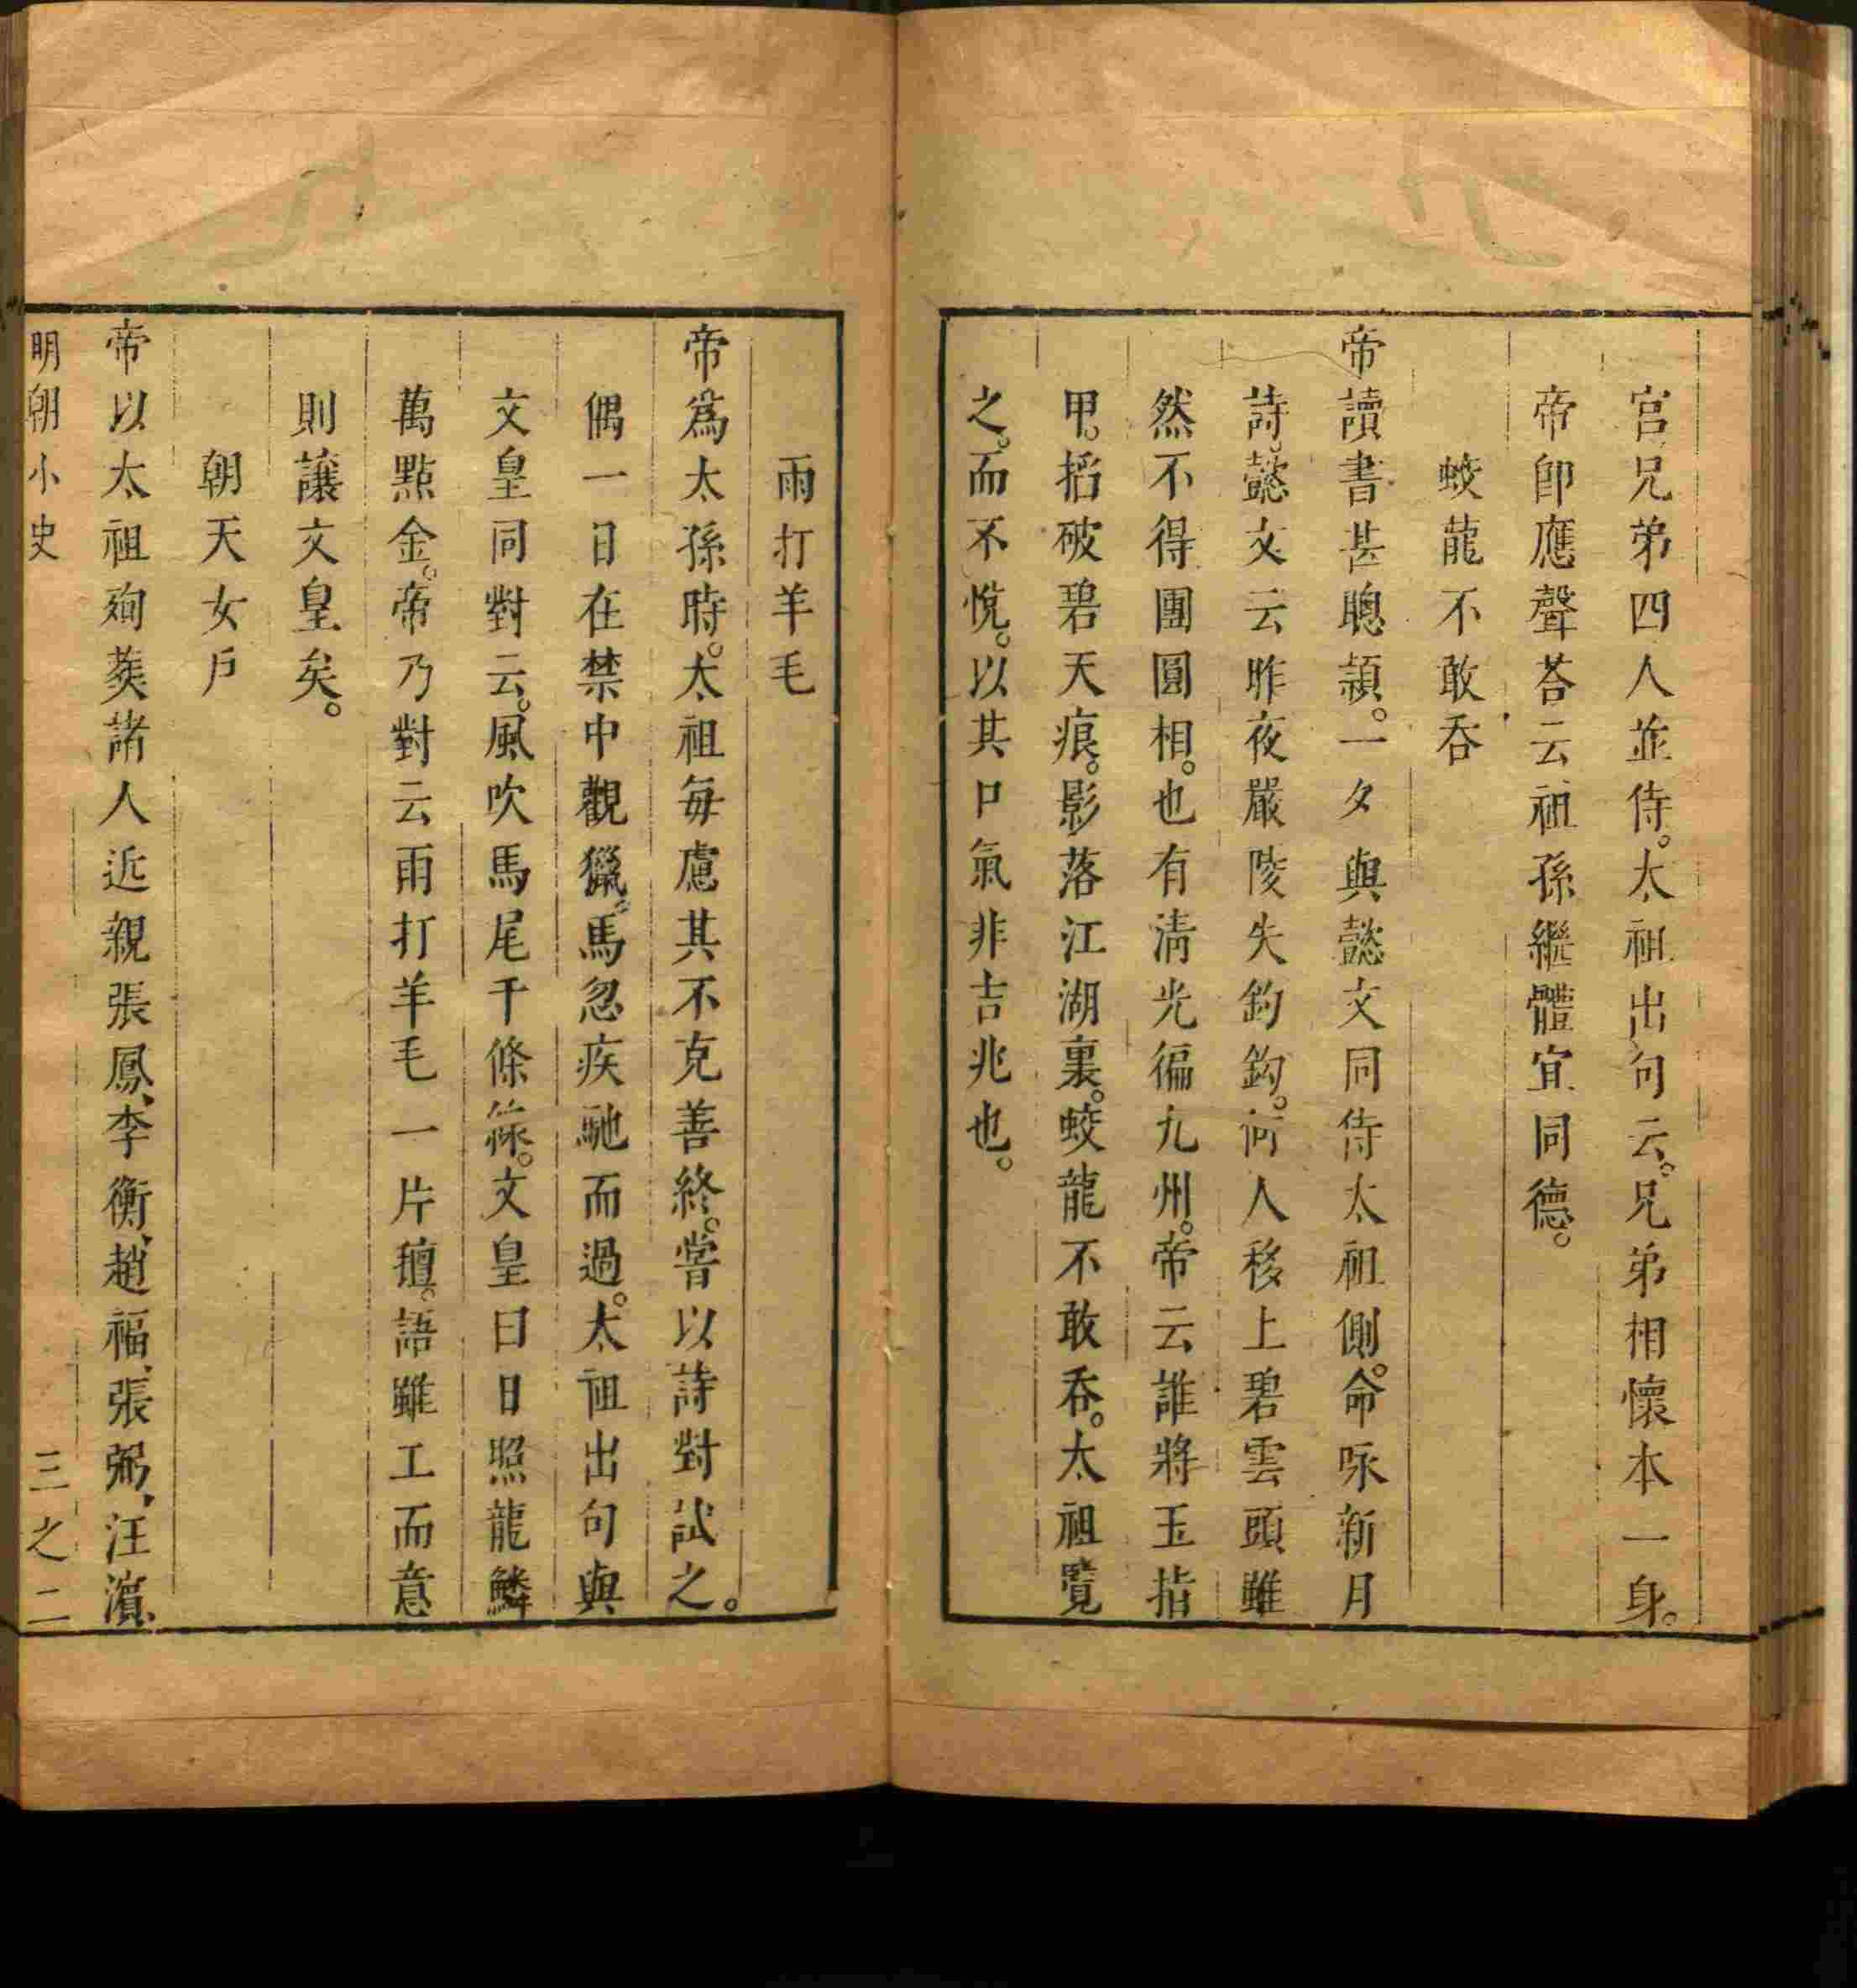 宫兄弟四人並侍。太祖出句云。兄弟相懷本一身。
帝卽應聲荅云祖孫繼體宜同德。
蛟龍不敢吞
帝讀書甚聰頴。一夕與懿文同侍太祖側。命咏新月
詩。懿文云昨夜嚴陵失釣鈎。何人移上碧雲頭雖
然不得團圓相。也有淸光徧九州。帝云誰將玉指
甲。掐破碧天痕。影落江湖裏。蛟龍不敢吞。太祖覽
之。而不悅。以其口氣非吉兆也。
雨打羊毛
帝爲太孫時。太祖每慮其不克善終。嘗以詩對試之。
偶一日在禁中觀獵。馬忽疾馳而過。太祖出句與
文皇同對云。風吹馬尾千條線。文皇曰日照龍鱗
萬點金。帝乃對云雨打羊毛一片氊。語雖工而意
則讓文皇矣。
朝天女戶
帝以太祖殉葬諸人近親張鳳、李衡、趙福、張弼、汪濵、
明朝小史
三之二